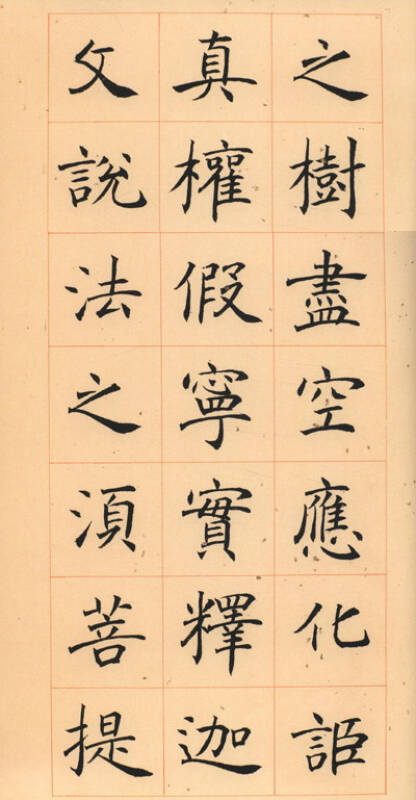 之樹盡空應化詎
真權假寧實釋迦
文說法之須菩提